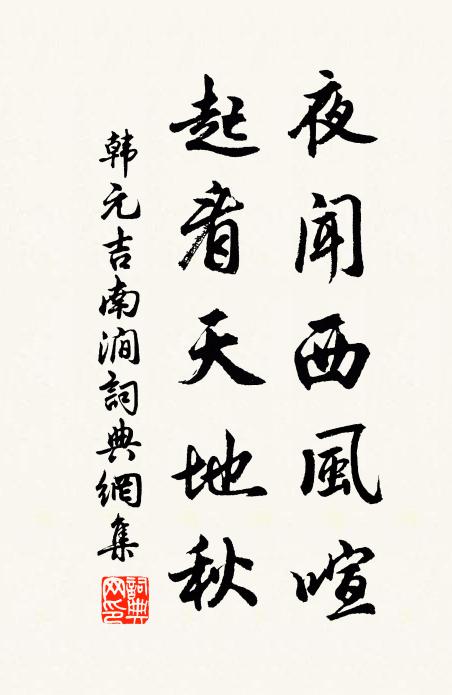 夜闻西風喧
起看天地秋
韩元吉南澗詞典網集
詞典网印